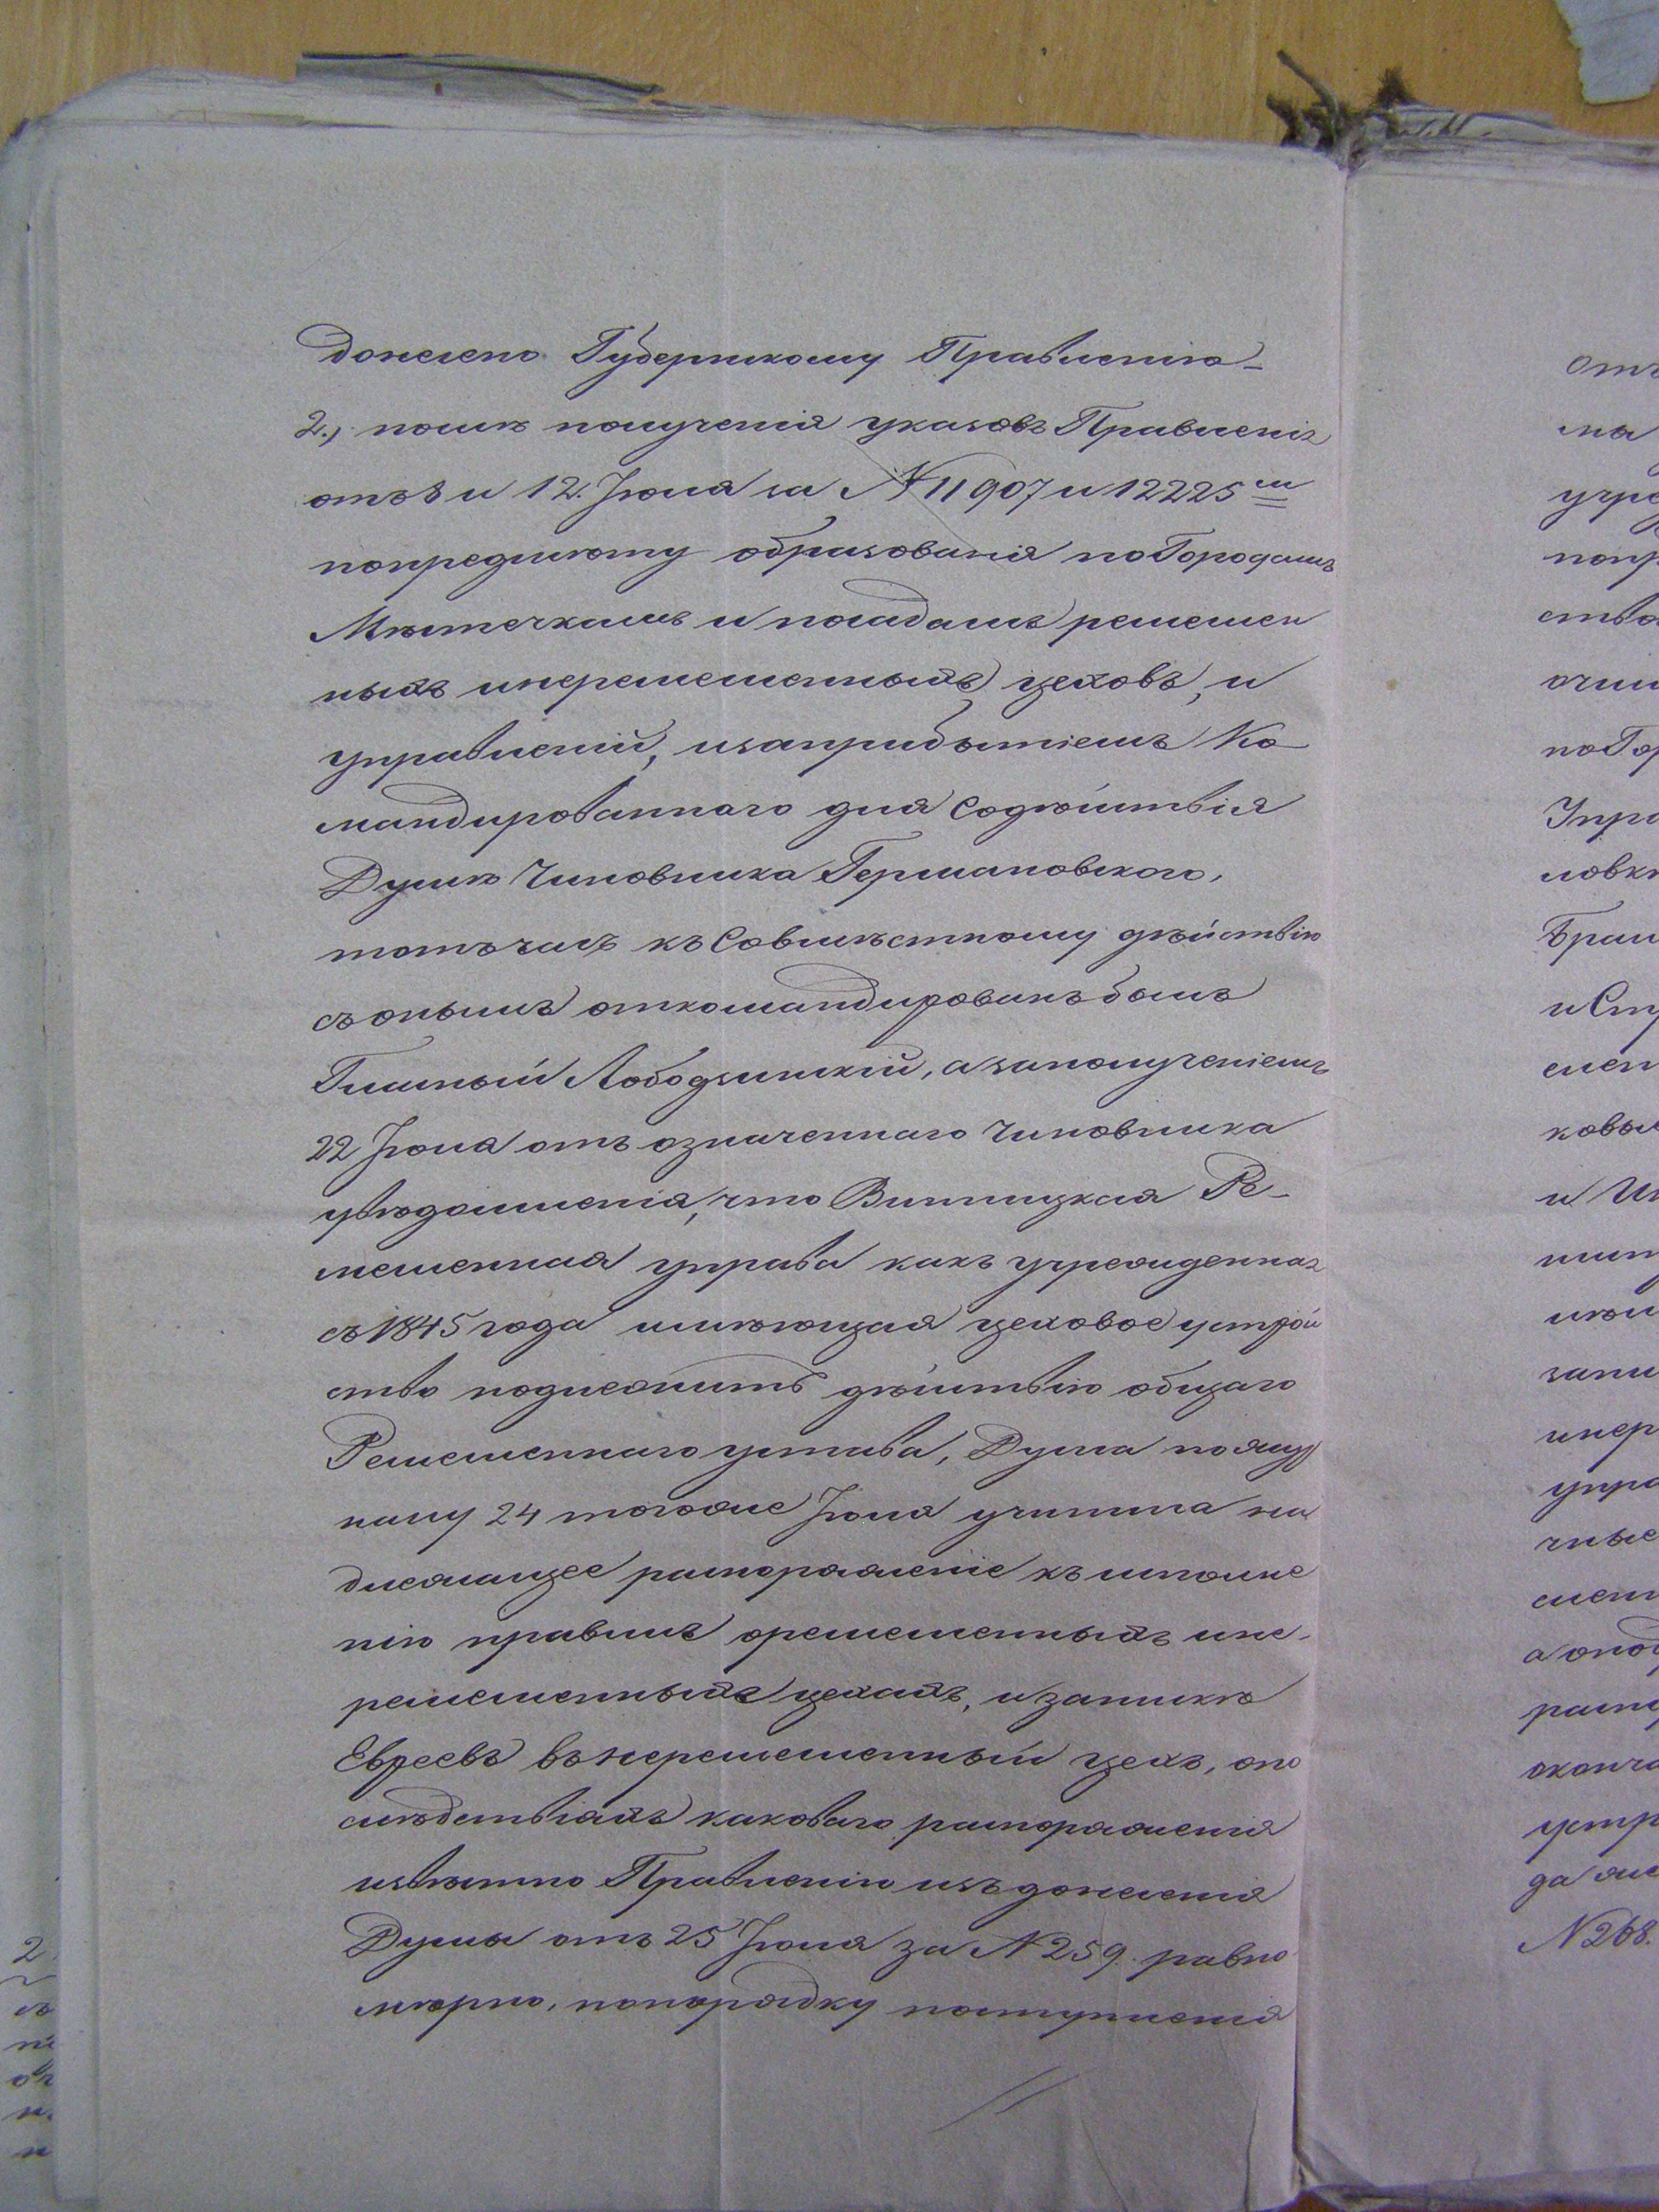 донесено Губернскому Правленію
2., послѣ полученія указовъ Правленія
отъ 8 и 12. Іюля за № 11907 и 12225 ㅤ
попредмѣту образованія по Городамъ
Мѣстечкамъ и посадамъ ремеслен
ныхъ инеремесленныхъ цеховъ, и
управленій, изаприбытіемъ Ко-
мандированнаго для Содѣйствія
Думѣ Чиновника Германовскаго,
тотъчасъ къ Совмѣстному дѣйствію
съ онымъ откомандированъ былъ
Гласный Лободзинскій, а заполученіемъ
22 Іюля отъ означеннаго Чиновника
увѣдомленія, что Винницкая Ре-
месленная управа какъ учрежденная
съ 1845 года имѣющая цеховое устрой
ство подлежитъ дѣйствію общаго
Ремесленнаго устава, Дума пожур
налу 24 тогоже Іюля учинила на
длежащее распоряженіе къ исполне
нію правилъ оремесленныхъ ине-
ремесленныхъ цехахъ, и запискѣ
Евреевъ въ неремесленный цехъ, опо
слѣдствіяхъ каковаго распоряженія
извѣстно Правленію изъ донесенія
Думы отъ 25 Іюля за № 259. равно
мѣрно, попорядку поступленія
отъ
на
учре
попр
ство
по Гор
Упра
ловк
Брац
и Ст
ковы
запи
инер
упра
чные
распо
оконча
устр
да же
№ 268.
2